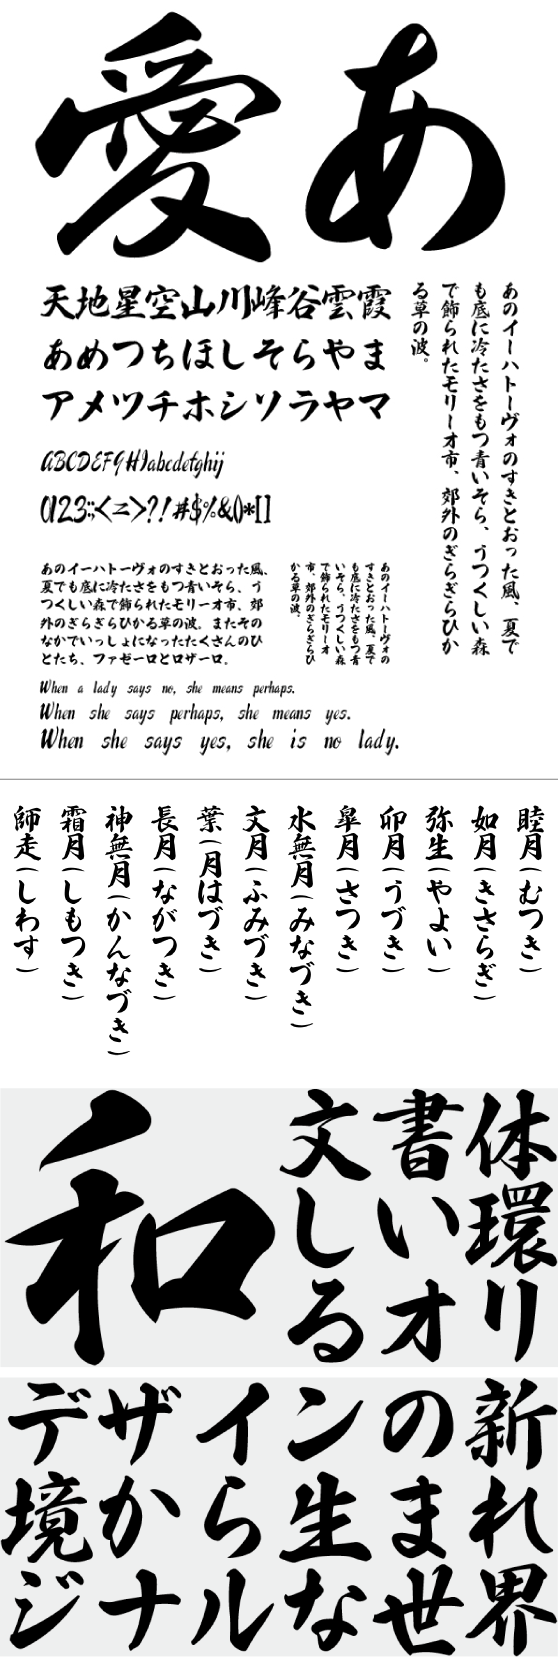 愛あ
天地星空山川峰谷雲霞
あめつちほしそらやま
アメツチホシソラヤマ
ABCDEFGHIabcdefghij
0123:;<=>?!#$%&()*[]
あのイーハトーヴォのすきとおった風、夏で
も底に冷たさをもつ青いそら、うつくしい森
で飾られたモリーオ市、郊外のぎらぎらひか
る草の波。
あのイーハトーヴォのすきとおった風、
夏でも底に冷たさをもつ青いそら、う
つくしい森で飾られたモリーオ市、郊
外のぎらぎらひかる草の波。またその
なかでいっしょになったたくさんのひ
とたち、ファゼーロとロザーロ。
あのイーハトーヴォの
すきとおった風、夏で
も底に冷たさをもつ青
いそら、うつくしい森
で飾られたモリーオ
市、郊外のぎらぎらひ
かる草の波。
When a lady says no, she means perhaps.
When she says perhaps, she means yes.
When she says yes, she is no lady.
睦月(むつき)
如月(きさらぎ)
弥生(やよい)
卯月(うづき)
皐月(さつき)
水無月(みなづき)
文月(ふみづき)
葉(月はづき)
長月(ながつき)
神無月(かんなづき)
霜月(しもつき)
師走(しわす)
和文書体
しい環
るオリ
デザインの新
境から生まれ
ジナルな世界